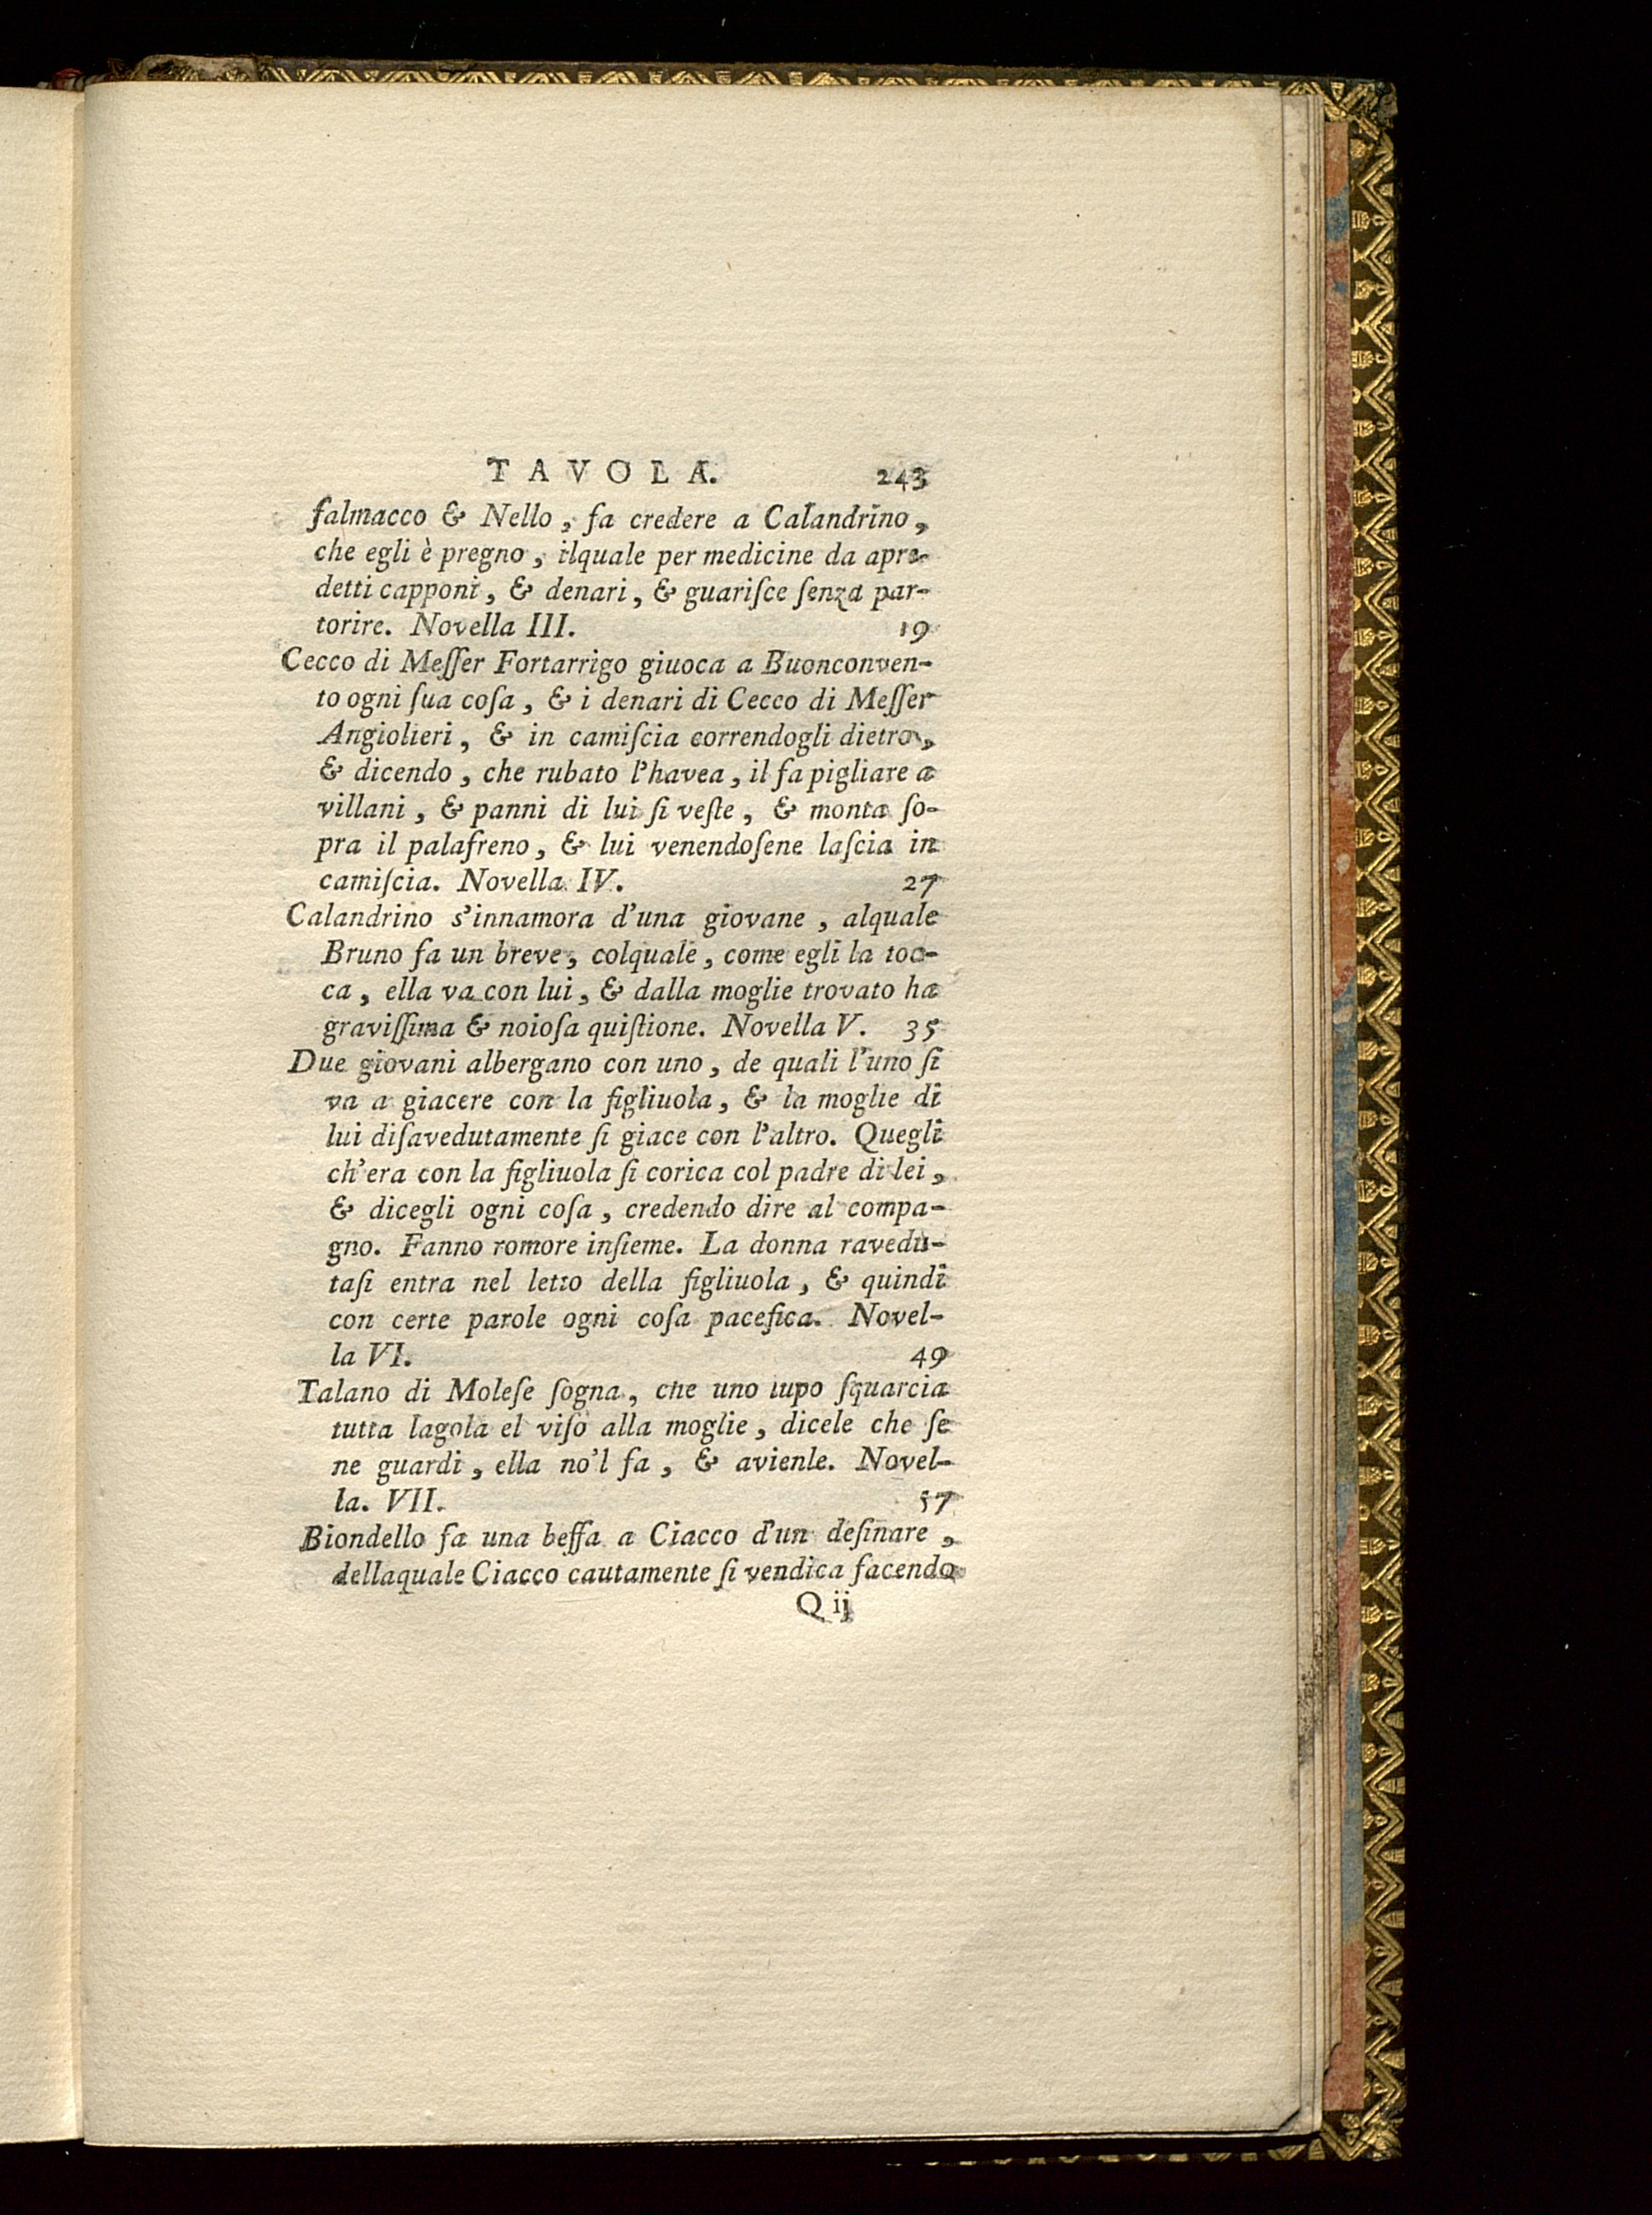 TAVOLA. 243
ſalmacco & Nello, fa credere a Calandrino,
che egli è pregno, ilquale per medicine da apre-
detti capponi, & denari, & guariſce ſenza par-
torire. Novella III. 19
Cecco di Meſſer Fortarrigo giuoca a Buonconven-
to ogni ſua coſa, & i denari di Cecco di Meſſer
Angiolieri, & in camiſcia correndogli dietro,
& dicendo, che rubato l'havea, il fa pigliare a
villani, & panni di lui ſi veſte, & monta ſo-
pra il palafreno, & lui venendoſene laſcia in
camiſcia. Novella IV. 27
Calandrino s'innamora d'una giovane, alquale
Bruno fa un breve, colquale, come egli la toc-
ca, ella va con lui, & dalla moglie trovato ha
graviſſima & noioſa quiſtione. Novella V. 35
Due giovani albergano con uno, de quali l'uno ſi
va a giacere con la figliuola, & la moglie di
lui diſavedutamente ſi giace con l'altro. Quegli
ch'era con la figliuola ſi corica col padre di lei,
& dicegli ogni coſa, credendo dire al compa-
gno. Fanno romore inſieme. La donna ravedu-
taſi entra nel letto della figliuola, & quindi
con certe parole ogni coſa pacefica. Novel-
la VI. 49
Talano di Moleſe ſogna, che uno lupo ſquarcia
tutta lagola el viſo alla moglie, dicele che ſe
ne guardi, ella no'l fa, & avienle. Novel-
la. VII. 57
Biondello fa una beffa a Ciacco d'un deſinare,
dellaquale Ciacco cautamente ſi vendica facendo
Q ij